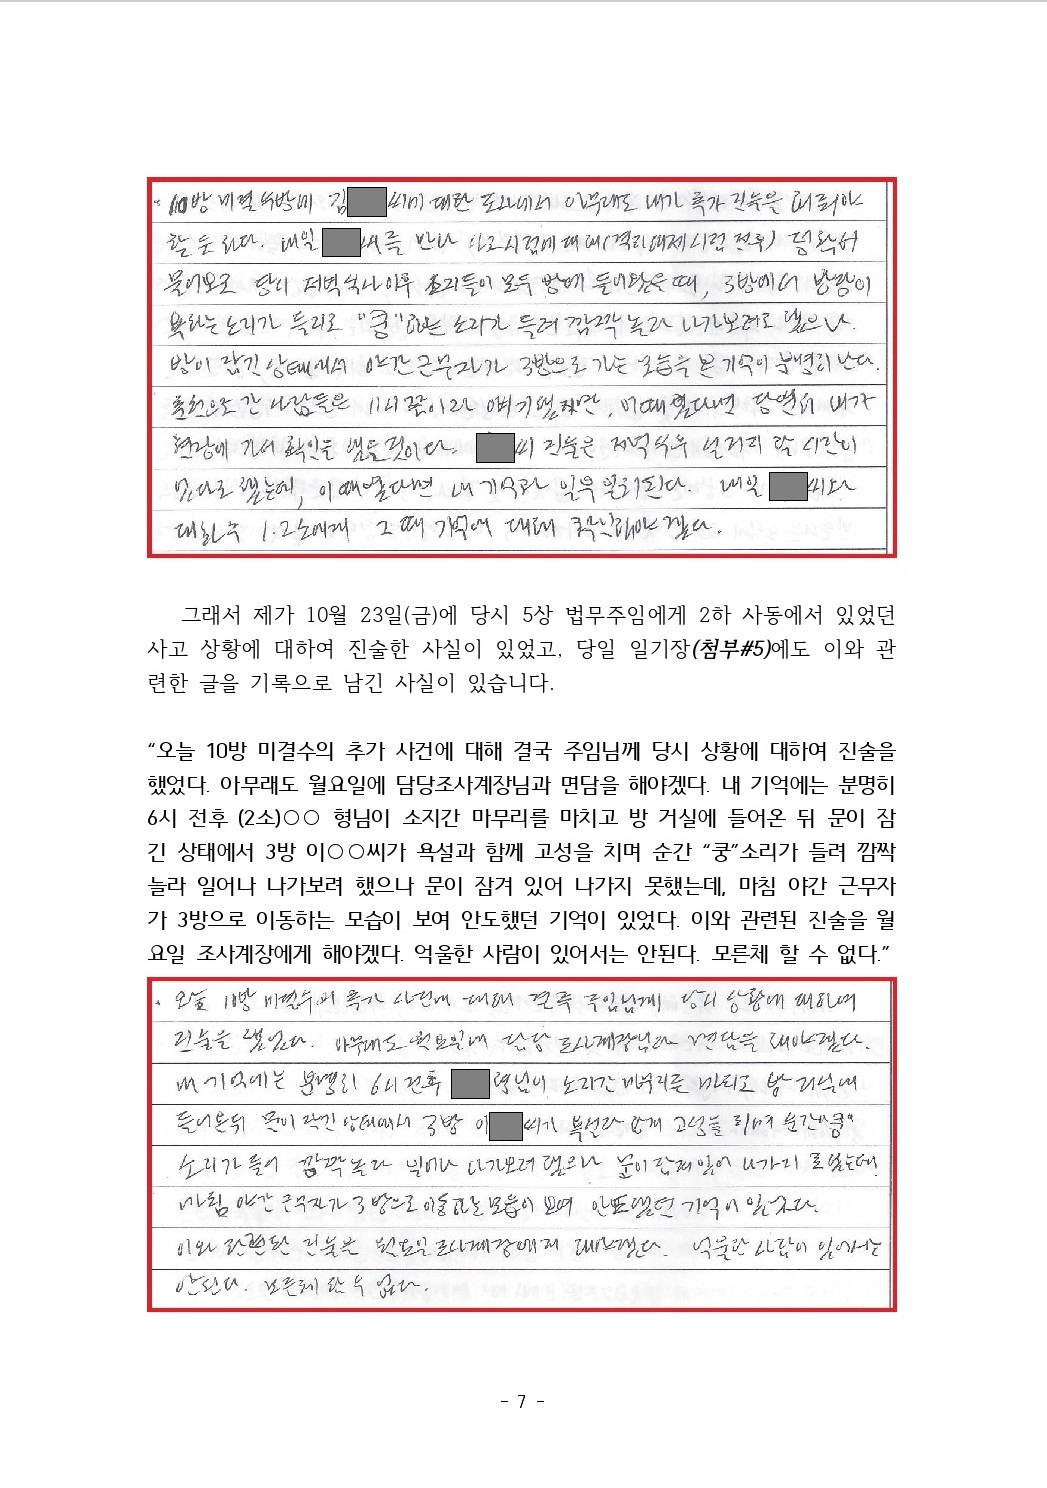 10방 미결수방에 김 씨에 대한 조사에서 아무래도 내가 추가 진술을 해줘야
할 듯 하다. 내일 씨를 만나 사고시점에 대해(격리해제시점 전후) 정확히
물어보고 당시 저녁식사 이후 소지들이 모두 방에 들어왔을 때, 3방에서 방광이
욕하는 소리가 들리고 "쿵"하는 소리가 들려 깜짝 놀라 나가보려고 했으나,
방이 잠긴 상태에서 야간근무자가 3방으로 가는 모습을 본 기억이 분명히 난다.
출원으로 간 사람들은 1시 꼴이라 얘기했지만, 이때였다면 당연히 내가
현장에 가서 확인을 했을것이다. 씨 진술은 저녁식후 설거리 할 시간이
었다고 했는데, 이때였다면 내 기억과 일부 일치된다. 내일 씨와
대화후 1.2소에게 그 때 기억에 대해 확인해야겠다.
그래서 제가 10월 23일(금)에 당시 5상 법무주임에게 2하 사동에서 있었던
사고 상황에 대하여 진술한 사실이 있었고, 당일 일기장(첨부#5)에도 이와 관
련한 글을 기록으로 남긴 사실이 있습니다.
“오늘 10방 미결수의 추가 사건에 대해 결국 주임님께 당시 상황에 대하여 진술을
했었다. 아무래도 월요일에 담당조사계장님과 면담을 해야겠다. 내 기억에는 분명히
6시 전후 (2소)○○ 형님이 소지간 마무리를 마치고 방 거실에 들어온 뒤 문이 잠
긴 상태에서 3방 이○○씨가 욕설과 함께 고성을 치며 순간 “쿵”소리가 들려 깜짝
놀라 일어나 나가보려 했으나 문이 잠겨 있어 나가지 못했는데, 마침 야간 근무자
가 3방으로 이동하는 모습이 보여 안도했던 기억이 있었다. 이와 관련된 진술을 월
요일 조사계장에게 해야겠다. 억울한 사람이 있어서는 안된다. 모른체 할 수 없다.”
오늘 10방 미결수의 추가 사건에 대해 결국 주임님께 당시 상황에 대하여
진술을 했었다. 아무래도 월요일에 담당 조사계장님과 면담을 해야겠다.
내 기억에는 분명히 6시전후 형님이 소지간 마무리를 마치고 방 거실에
들어온뒤 문이 잠긴 상태에서 3방 이 씨가 욕설과 함께 고성을 치며 순간"쿵"
소리가 들려 깜짝 놀라 일어나 나가보려 했으나 문이 잠겨 있어 나가지 못했는데
마침 야간 근무자가 3방으로 이동하는 모습이 보여 안도했던 기억이 있었다.
이와 관련된 진술을 월요일 조사계장에게 해야겠다. 억울한 사람이 있어서는
안된다. 모른체 할 수 없다.
- 7 -